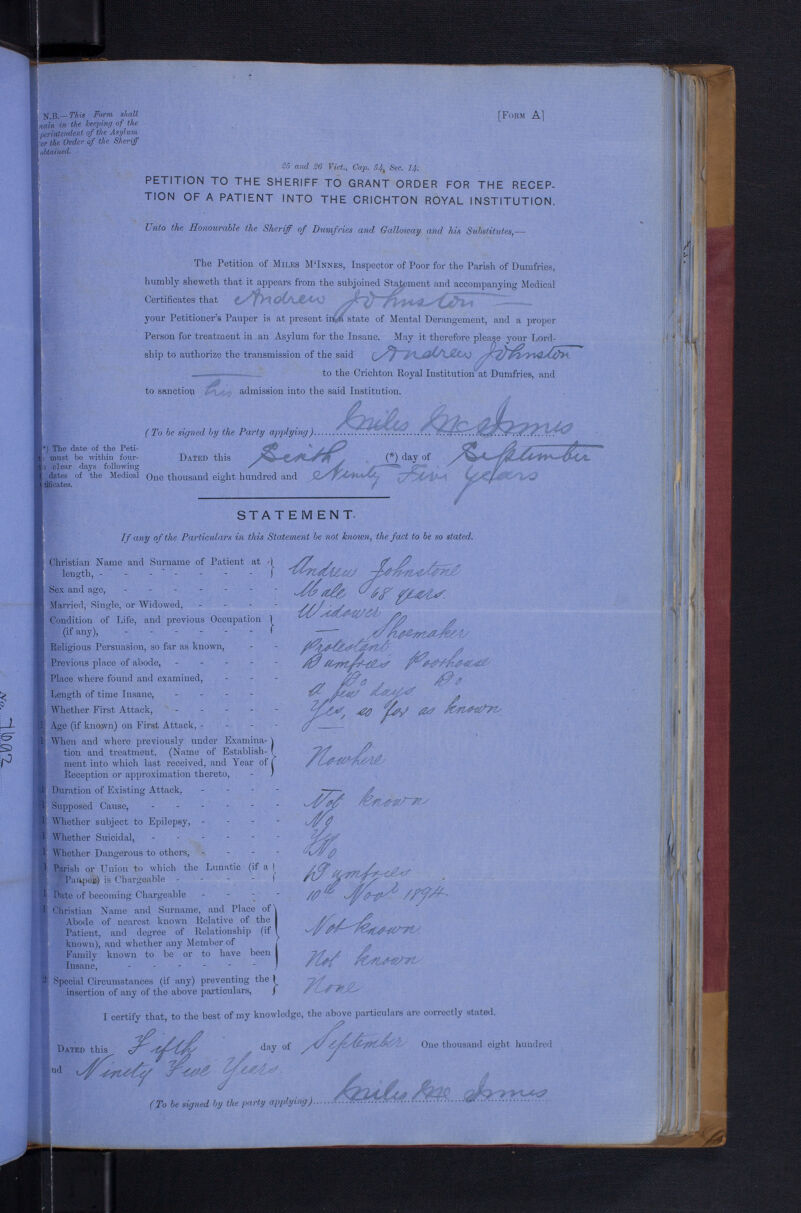 N.B.—This Form shall
in the keeping of the
of the Asylum
the Order of the Sheriff
obtained.
[Form A]
25 and 26 Vict., Cap. 54, Sec. 14.
PETITION TO THE SHERIFF TO GRANT ORDER FOR THE RECEP-
TION OF A PATIENT INTO THE CRICHTON ROYAL INSTITUTION.
Unto the Honourable the Sheriff of Dumfries and Galloway and his Substitutes,—
The Petition of Miles M'Innes, Inspector of Poor for the Parish of Dumfries,
humbly sheweth that it appears from the subjoined Statement and accompanying Medical
Certificates that Andrew Johnston
your Petitioner's Pauper is at present in a state of Mental Derangement, and a proper
Person for treatment in an Asylum for the Insane. May it therefore please your Lord-
ship to authorize the transmission of the said Andrew Johnston
to the Crichton Royal Institution at Dumfries, and
to sanction his admission into the said Institution.
(To be signed by the Party applying) Miles McInnes
(*) The date of the Peti-
must be within four-
clear days following
dates of the Medical
Dated this Sixth (*) day of September
One thousand eight hundred and Ninety Five years
STATEMENT.
If any of the Particulars in this Statement be not known, the fact to be so stated.
Christian Name and Surname of Patient at length, - Andrew Johnstone
Sex and age, - Male 68 years.
Married, Single, or Widowed, - Widower
Condition of Life, and previous Occupation
(if any), - — Shoemaker
Religious Persuasion, so far as known, - Protestant
Previous place of abode, - Dumfries Poorhouse
Place where found and examined, - Do Do
Length of time Insane, - a few days
Whether First Attack, - Yes, so far as known
Age (if known) on First Attack, - —
When and where previously under Examina-
tion and treatment, (Name of Establish-
ment into which last received, and Year of
Reception or approximation thereto, - Nowhere
Duration of Existing Attack, - —
Supposed Cause, - Not known
Whether subject to Epilepsy, - No
Whether Suicidal, - Yes
Whether Dangerous to others, - No
Parish or Union to which the Lunatic (if a
Pauper) is Chargeable - Dumfries
Date of becoming Chargeable - 10th Novr 1894
Christian Name and Surname, and Place of
Abode of nearest known Relative of the
Patient, and degree of Relationship (if
known), and whether any Member of
Family known to be or to have been
Insane, - Not known
Not known
Special Circumstances (if any) preventing the
insertion of any of the above particulars, None
I certify that, to the best of my knowledge, the above particulars are correctly stated.
Dated this Fifth day of September One thousand eight hundred
Ninety Five Years
(To be signed by the party applying) Miles McInnes